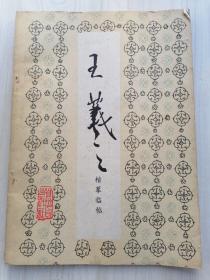 王羲之
楷草临帖